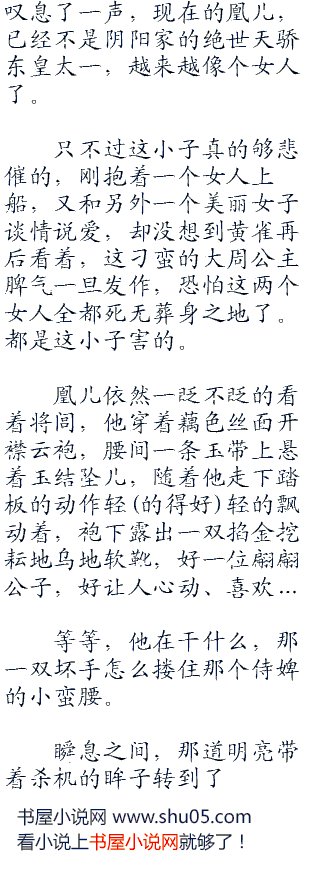 叹息了一声，现在的凰儿，
已经不是阴阳家的绝世天骄
东皇太一，越来越像个女人
了。
只不过这小子真的够悲
催的，刚抱着一个女人上
船，又和另外一个美丽女子
谈情说爱，却没想到黄雀再
后看着，这刁蛮的大周公主
脾气一旦发作，恐怕这两个
女人全都死无葬身之地了。
都是这小子害的。
凰儿依然一眨不眨的看
着将闾，他穿着藕色丝面开
襟云袍，腰间一条玉带上悬
着玉结坠儿，随着他走下踏
板的动作轻(的得好)轻的飘
动着，袍下露出一双掐金挖
耘地乌地软靴，好一位翩翩
公子，好让人心动、喜欢…
等等，他在干什么，那
一双坏手怎么搂住那个侍婢
的小蛮腰。
瞬息之间，那道明亮带
着杀机的眸子转到了
书屋小说网 www.shu05.com
看小说上书屋小说网就够了！